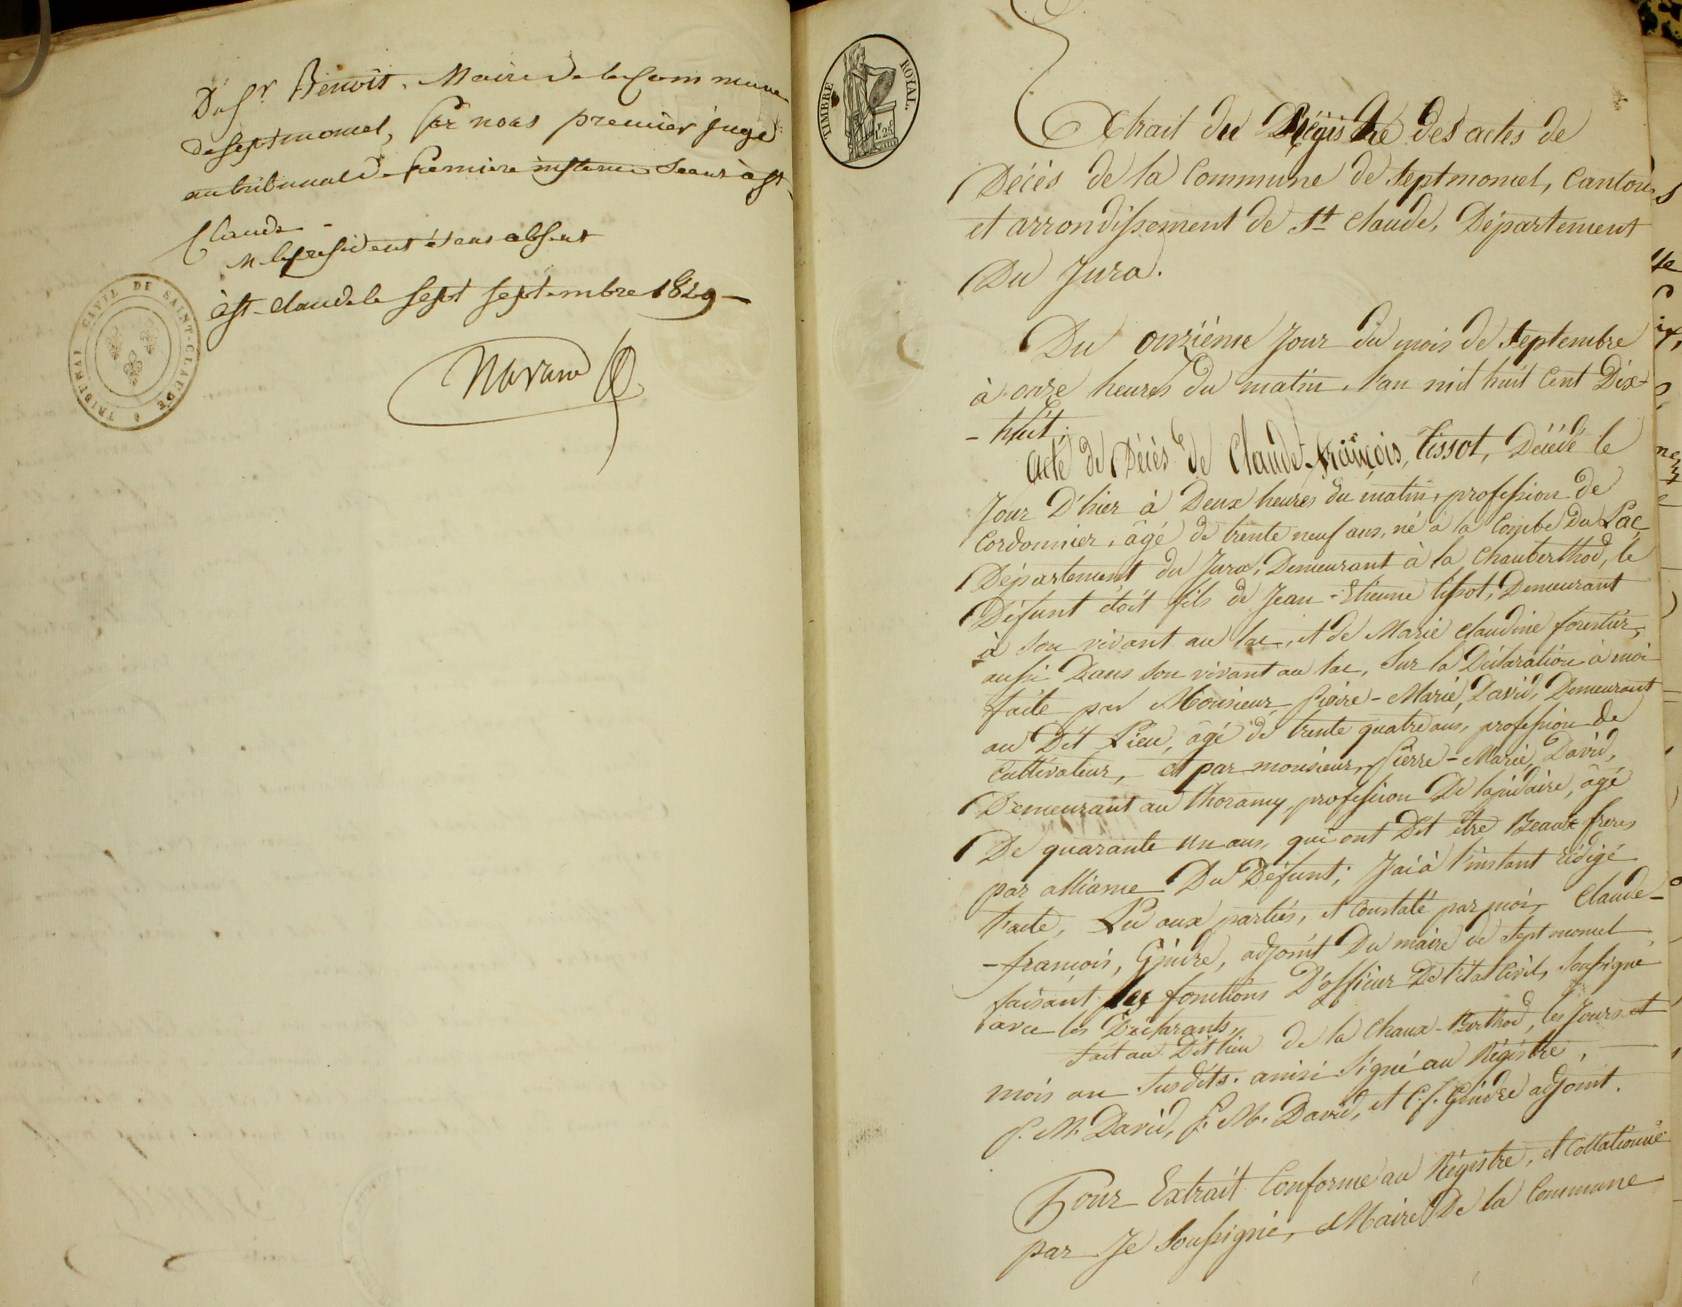 Du Sr Benoit, Maire de la Commune
de septmoncel, par nous premier juge
au tribunal de premiere instance seant à st
Claude
M. le president étant absent
à st-claude le sept septembre 1829
TRIBUNAL CIVIL DE SAINT-CLAUDE
TIMBRE ROYAL.
Extrait du Régistre des actes de
Décès de la Commune de septmoncel, Canton
et arrondissement de St Claude, Département
Du Jura.
Du onzième Jour du mois de septembre
à onze heures du matin, l'an mil huit Cent Dix-
-huit.
acté de Décès de Claude-françois, Tissot, Décédé le
Jour D'hier à Deux heures du matin, profession de
Cordonnier, âgé de trente neuf ans, né à la Combe du Lac
Département du Jura, Demeurant à la Chauberthod, le
Défunt étoit fils de Jean-Etienne tissot, Demeurant
à son vivant au lac, et de Marie claudine forestier,
aussi Dans son vivant au lac, sur la Déclaration à moi
faite par Monsieur Pierre-Marie, David, Demeurant
au Dit Lieu, âgé de trente quatre ans, profession de
Cultivateur, et par monsieur, Pierre-Marie, David,
Demeurant au thoramy, profession De lapidaire, âgé
De quarante un ans, qui ont Dit être Beaux freres
par alliance Du Défunt; J'ai à l'instant rédigé
l'acte, Lu aux parties, et Constaté par moi, Claude-
-francois, Gindre, adjoint Du maire de septmoncel
faisant les fonctions D'officier De l'état Civil, soussigné
avec les Déclarants,
fait au Dit lieu de la Chaux-Berthod, les Jours et
mois an susdits. ainsi signé au Régistre,
P. M. David, P. M. David, et C. f. Gindre adjoint.
Pour Extrait Conforme au Régistre, et Collationné
par Je soussigné, Maire De la Commune